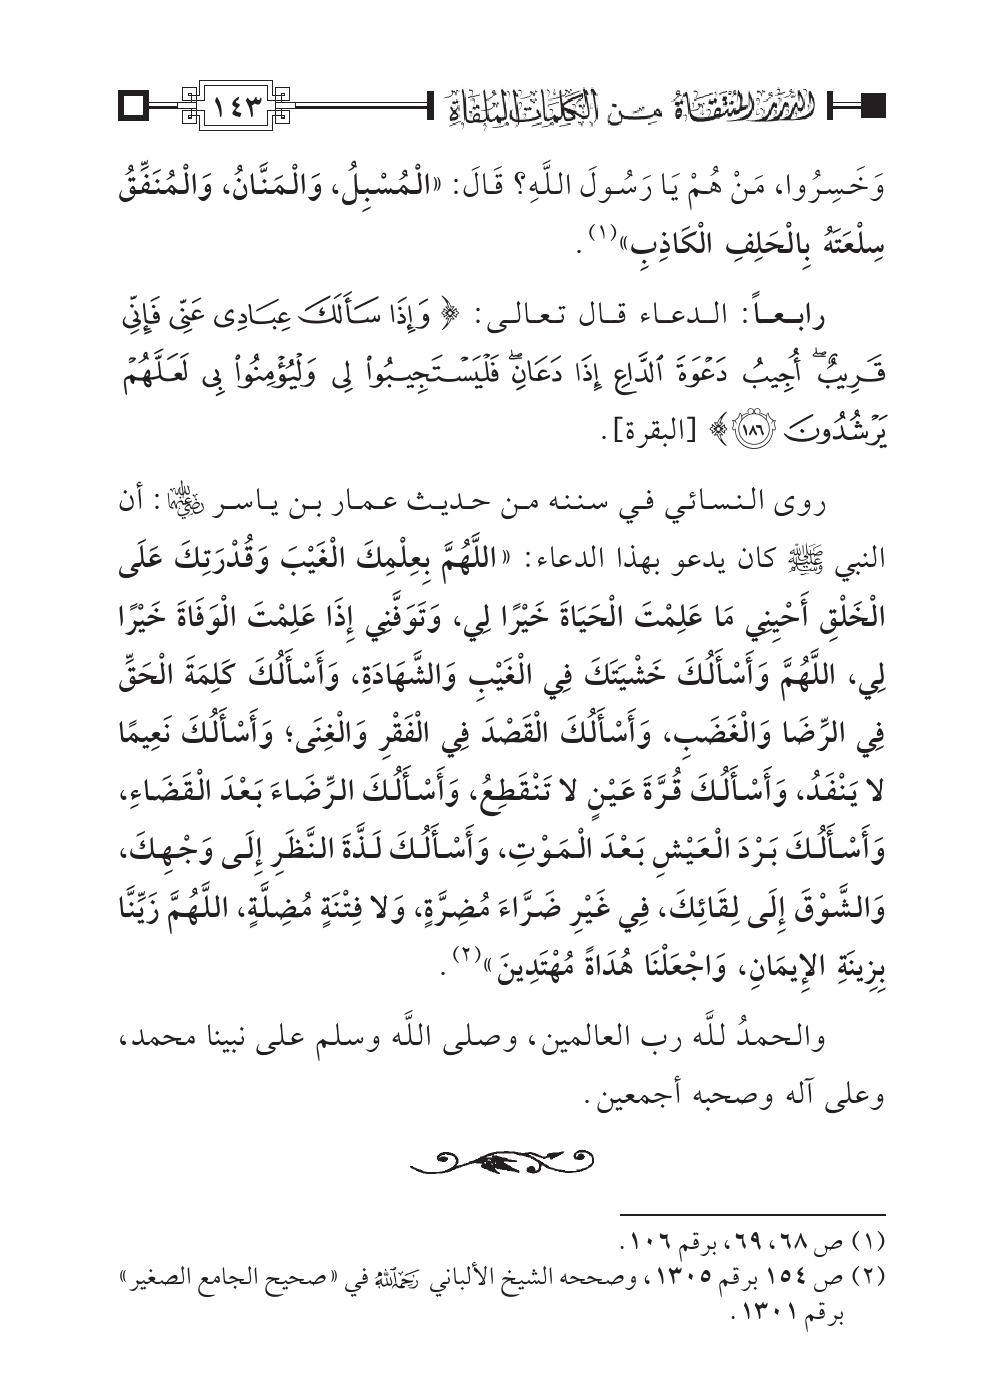 الدرر المنتقاة من الكلمات الملقاة
١٤٣
وَخَسِرُوا، مَنْ هُمْ يَا رَسُولَ اللَّهِ؟ قَالَ: «الْمُسْبِلُ، وَالْمَنَّانُ، وَالْمُنَفِّقُ
سِلْعَتَهُ بِالْحَلِفِ الْكَاذِبِ»(١).
رابعاً: الدعاء قال تعالى: ﴿وَإِذَا سَأَلَكَ عِبَادِى عَنِّى فَإِنِّى
قَرِيبٌ ۖ أُجِيبُ دَعْوَةَ ٱلدَّاعِ إِذَا دَعَانِ ۖ فَلْيَسْتَجِيبُوا۟ لِى وَلْيُؤْمِنُوا۟ بِى لَعَلَّهُمْ
يَرْشُدُونَ ١٨٦﴾ [البقرة].
روى النسائي في سننه من حديث عمار بن ياسر رضي الله عنهما: أن
النبي ﷺ كان يدعو بهذا الدعاء: «اللَّهُمَّ بِعِلْمِكَ الْغَيْبَ وَقُدْرَتِكَ عَلَى
الْخَلْقِ أَحْيِنِي مَا عَلِمْتَ الْحَيَاةَ خَيْرًا لِي، وَتَوَفَّنِي إِذَا عَلِمْتَ الْوَفَاةَ خَيْرًا
لِي، اللَّهُمَّ وَأَسْأَلُكَ خَشْيَتَكَ فِي الْغَيْبِ وَالشَّهَادَةِ، وَأَسْأَلُكَ كَلِمَةَ الْحَقِّ
فِي الرِّضَا وَالْغَضَبِ، وَأَسْأَلُكَ الْقَصْدَ فِي الْفَقْرِ وَالْغِنَى؛ وَأَسْأَلُكَ نَعِيمًا
لا يَنْفَدُ، وَأَسْأَلُكَ قُرَّةَ عَيْنٍ لا تَنْقَطِعُ، وَأَسْأَلُكَ الرِّضَاءَ بَعْدَ الْقَضَاءِ،
وَأَسْأَلُكَ بَرْدَ الْعَيْشِ بَعْدَ الْمَوْتِ، وَأَسْأَلُكَ لَذَّةَ النَّظَرِ إِلَى وَجْهِكَ،
وَالشَّوْقَ إِلَى لِقَائِكَ، فِي غَيْرِ ضَرَّاءَ مُضِرَّةٍ، وَلا فِتْنَةٍ مُضِلَّةٍ، اللَّهُمَّ زَيِّنَّا
بِزِينَةِ الإِيمَانِ، وَاجْعَلْنَا هُدَاةً مُهْتَدِينَ»(٢).
والحمدُ للَّه رب العالمين، وصلى اللَّه وسلم على نبينا محمد،
وعلى آله وصحبه أجمعين.
(١) ص ٦٨، ٦٩، برقم ١٠٦.
(٢) ص ١٥٤ برقم ١٣٠٥، وصححه الشيخ الألباني رحمه الله في «صحيح الجامع الصغير»
برقم ١٣٠١.